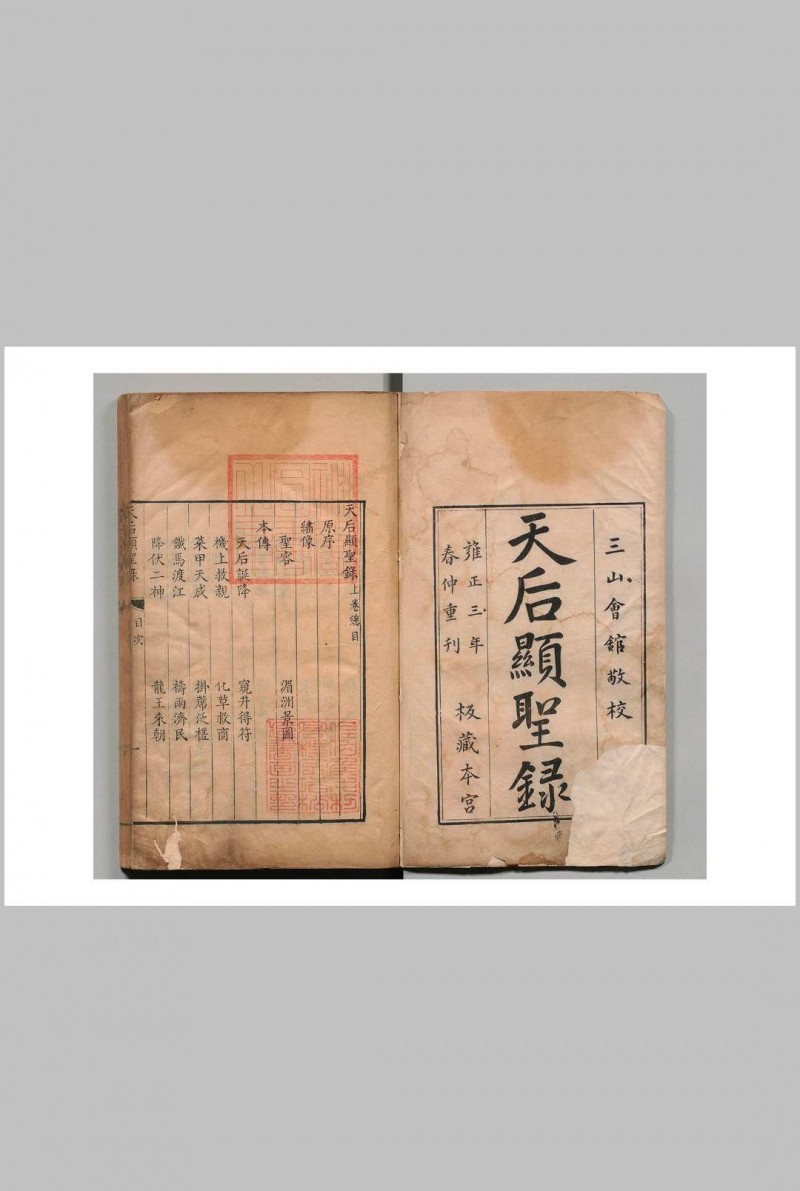 三山會館敬校
天后顯聖錄
雍正三年
春仲重刊
板藏本宮
天后顯聖錄上卷總目
原序
繡像
聖容 湄洲景圖
本傳
天后誕降 窺井得符
機上救親 化草救商
菜甲天成 掛蓆泛槎
鐵馬渡江 禱雨濟民
降伏二神 龍王來朝
天后顯聖錄 目次 一